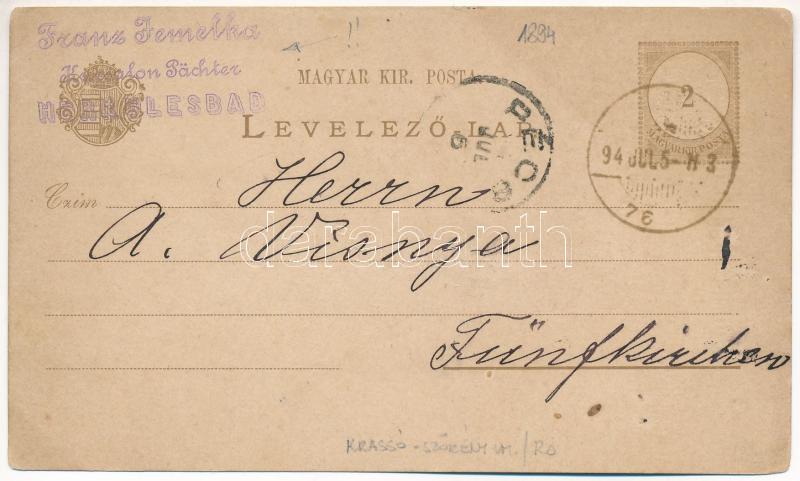 Franz Jemelka
Kursalon Pächter
HERKULESBAD
!!
1894
MAGYAR KIR. POSTA
LEVELEZŐ LAP
2
MAGYAR KIR. POSTA
PÉCS
JUL
6
94 JUL 5 - N 3
76
Czim
Herrn
A. Visnya
Fünfkirchen
darabanth
KRASSÓ - SZÖRÉNY VM. / RO